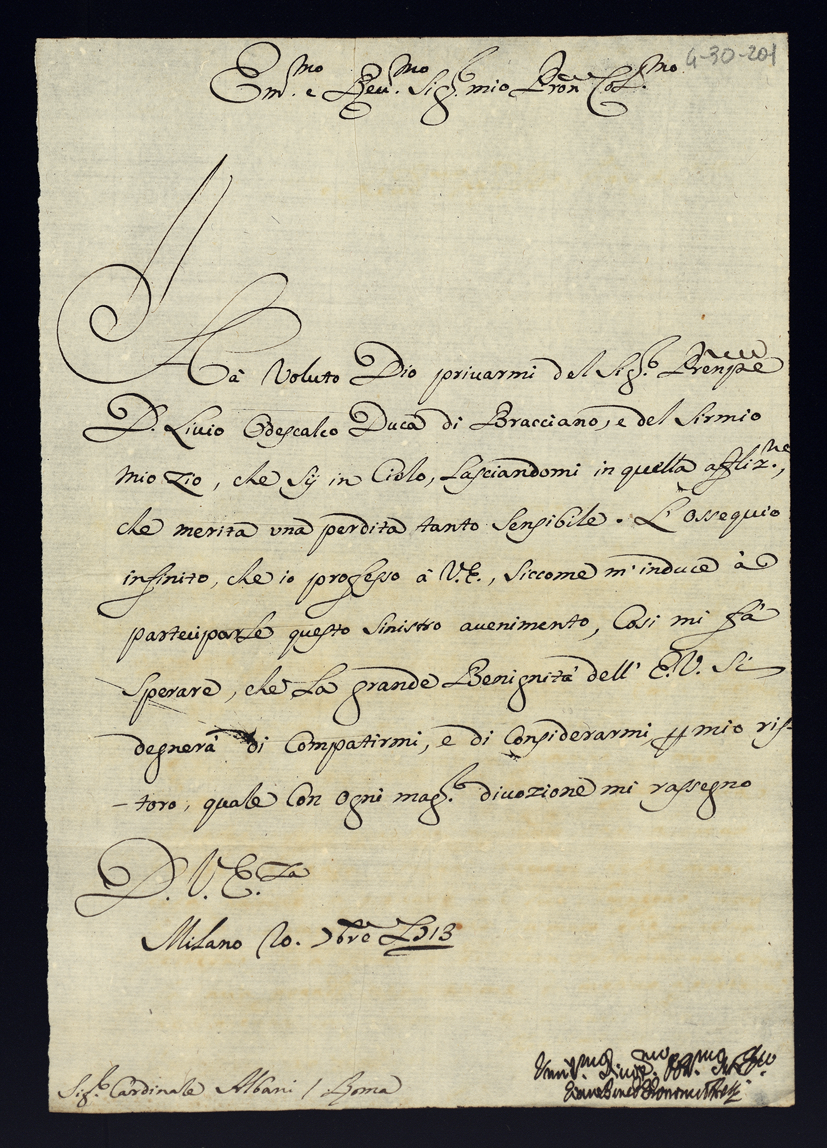 4-30-201
Em.mo e Reu.mo Sig.r mio Pron Col.mo
Hà Voluto Dio priuarmi del Sig.r Prenpe
D. Liuio Odescalco Duca di Bracciano, e del Sirmio
mio Zio, che sij in Cielo, Lasciandomi in quella afliz.ne,
che merita una perdita tanto Sensibile. L'Ossequio
infinito, che io professo à V.E., Siccome m'induce à
parteciparLe questo Sinistro auenimento, Così mi fà
Sperare, che La grande Benignità dell' E.V. Si
degnerà di Compatirmi, e di Considerarmi p mio ris-
-toro, quale Con ogni mag.r diuozione mi rassegno
D. V. E.za
Milano 20. 7bre 1713
Sig.r Cardinale Albani / Roma